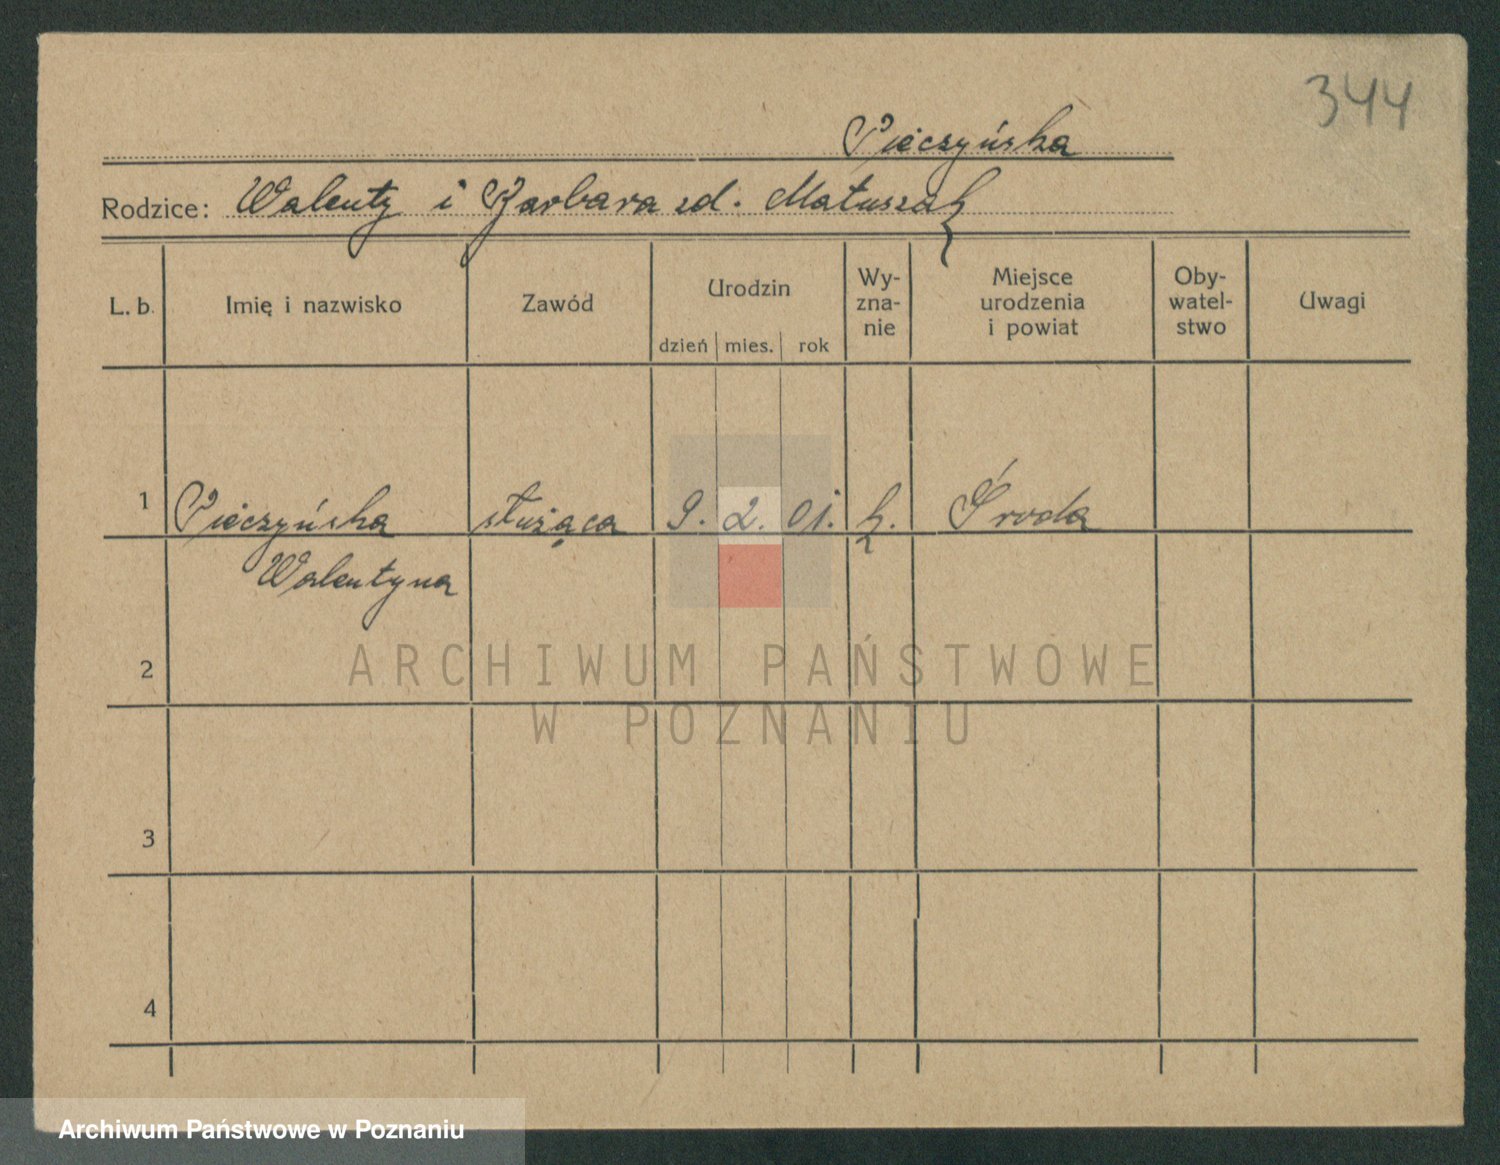 344
Pieczyńska
Rodzice: Walenty i Barbara zd. Matuszak
L. b. Imię i nazwisko Zawód Urodzin dzień mies. rok Wy-zna-nie Miejsce urodzenia i powiat Oby-watel-stwo Uwagi
1 Pieczyńska służąca 9. 2. 01. k. Środa
Walentyna
2
3
4
ARCHIWUM PAŃSTWOWE
W POZNANIU
Archiwum Państwowe w Poznaniu